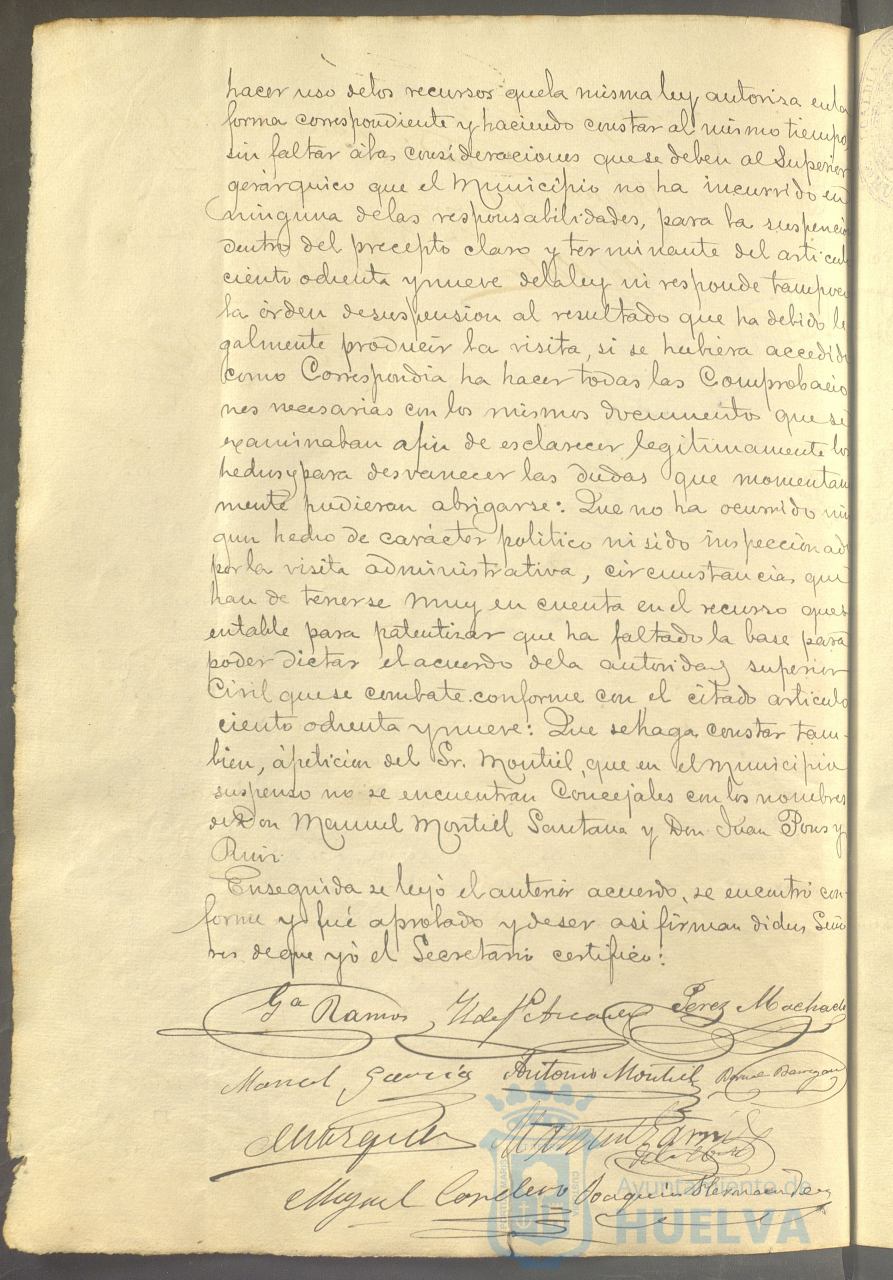 hacer uso delos recursos quela misma ley autoriza enla
forma correspondiente y haciendo constar al mismo tiempo,
sin faltar álas consideraciones que se deben al Superior
gerárquico que el Municipio no ha incurrido en
ninguna delas responsabilidades, para la suspenció
dentro del precepto claro y terminante del articul
ciento ochenta y nueve dela ley ni responde tampoco
la órden desuspension al resultado que ha debido le
galmente producir la visita, si se hubiera accedido
como Correspondia ha hacer todas las Comprobacio
nes necesarias con los mismos documentos que se
examinaban afin de esclarecer legitimamente los
hechos y para desvanecer las dudas que momentan
mente pudieran abrigarse: Que no ha ocurrido nin
gun hecho de carácter politico ni sido inspeccionado
por la visita administrativa, circunstancias que
han de tenerse muy en cuenta en el recurso que se
entable para patentizar que ha faltado la base para
poder dictar el acuerdo dela autoridad superior
Civil que se combate conforme con el citado articulo
ciento ochenta y nueve: Que se haga constar tam-
bien, ápeticion del Sr. Montiel, que en el municipio
suspenso no se encuentran Concejales con los nombres
de Don Manuel Montiel Santana y Don Juan Pons y
Ruiz.
Enseguida se leyó el anterior acuerdo, se encontró con-
forme y fué aprobado y deser asi firman dichos Seño
res deque yó el Secretario certifico:
Gª Ramos Perez Machado
Manuel Garcia Antonio Montiel
Marquez Manuel Garcia
Miguel Cordero Joaquin Hernandez
Ayuntamiento de
HUELVA